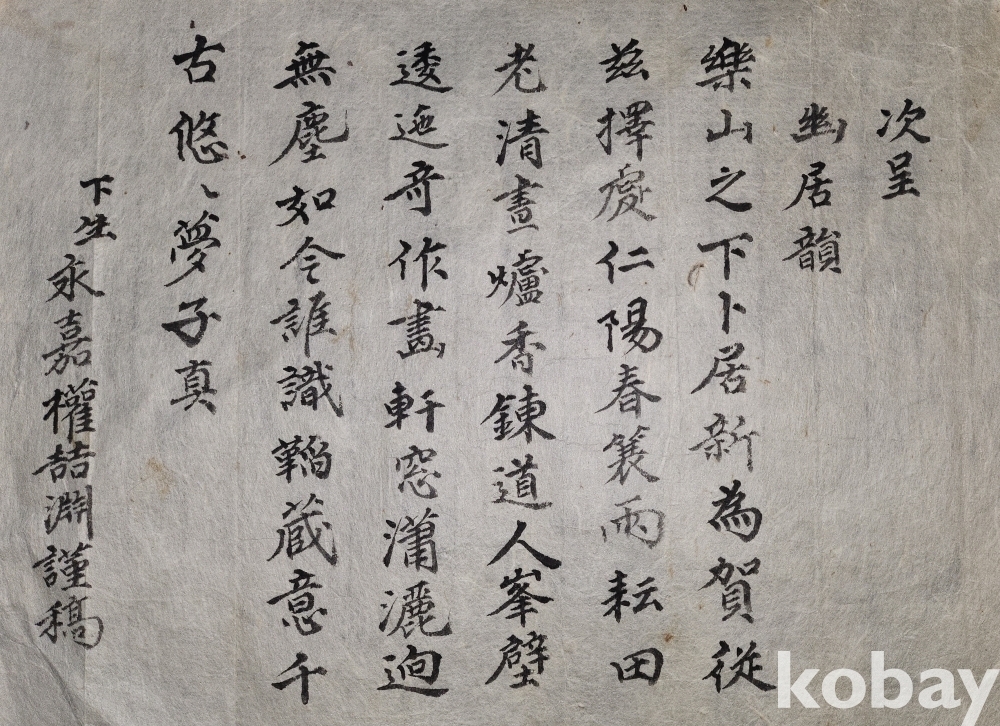 次呈
幽居韻
樂山之下卜居新為賀從
玆擇處仁陽春蓑雨耘田
老清晝爐香鍊道人峯壁
逶迤奇作畵軒窓瀟灑逈
無塵如今誰識韜蔵意千
古悠〻夢子真
下生永嘉權喆淵謹稿
kobay